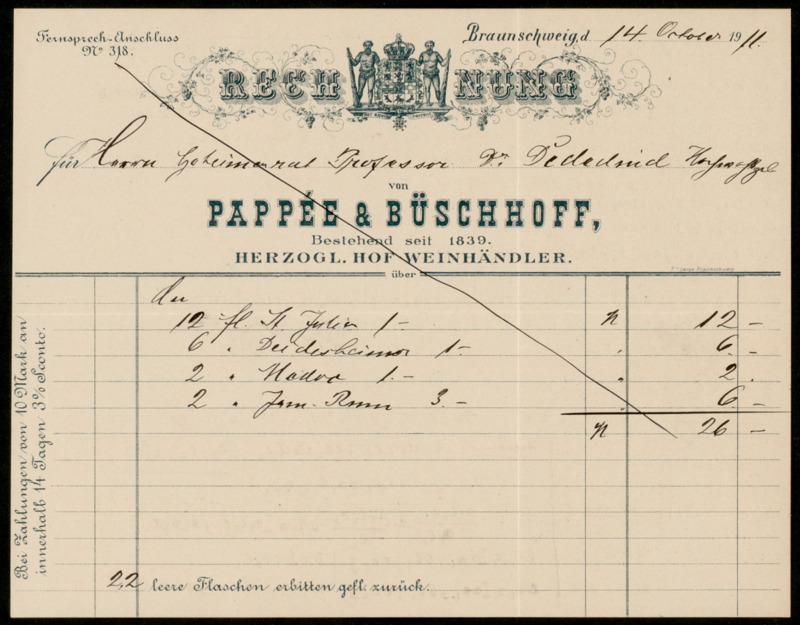 Fernsprech-Anschluss
No 318.
Braunschweig, d. 14. October 1911.
RECHNUNG
für Herrn Geheimenrat Professor Dr. Dedekind
von
PAPPÉE & BÜSCHHOFF,
Bestehend seit 1839.
HERZOGL. HOF WEINHÄNDLER.
über
12 fl. St. Julien 1 – M 12 –
6 " Deidesheimer 1 – " 6 –
2 " 1. – " 2.
2 " Jam. Rum 3. – " 6 –
M 26 –
22 leere Flaschen erbitten gefl. zurück.
Bei Zahlungen von 10 Mark an
innerhalb 14 Tagen 3% Sconto.